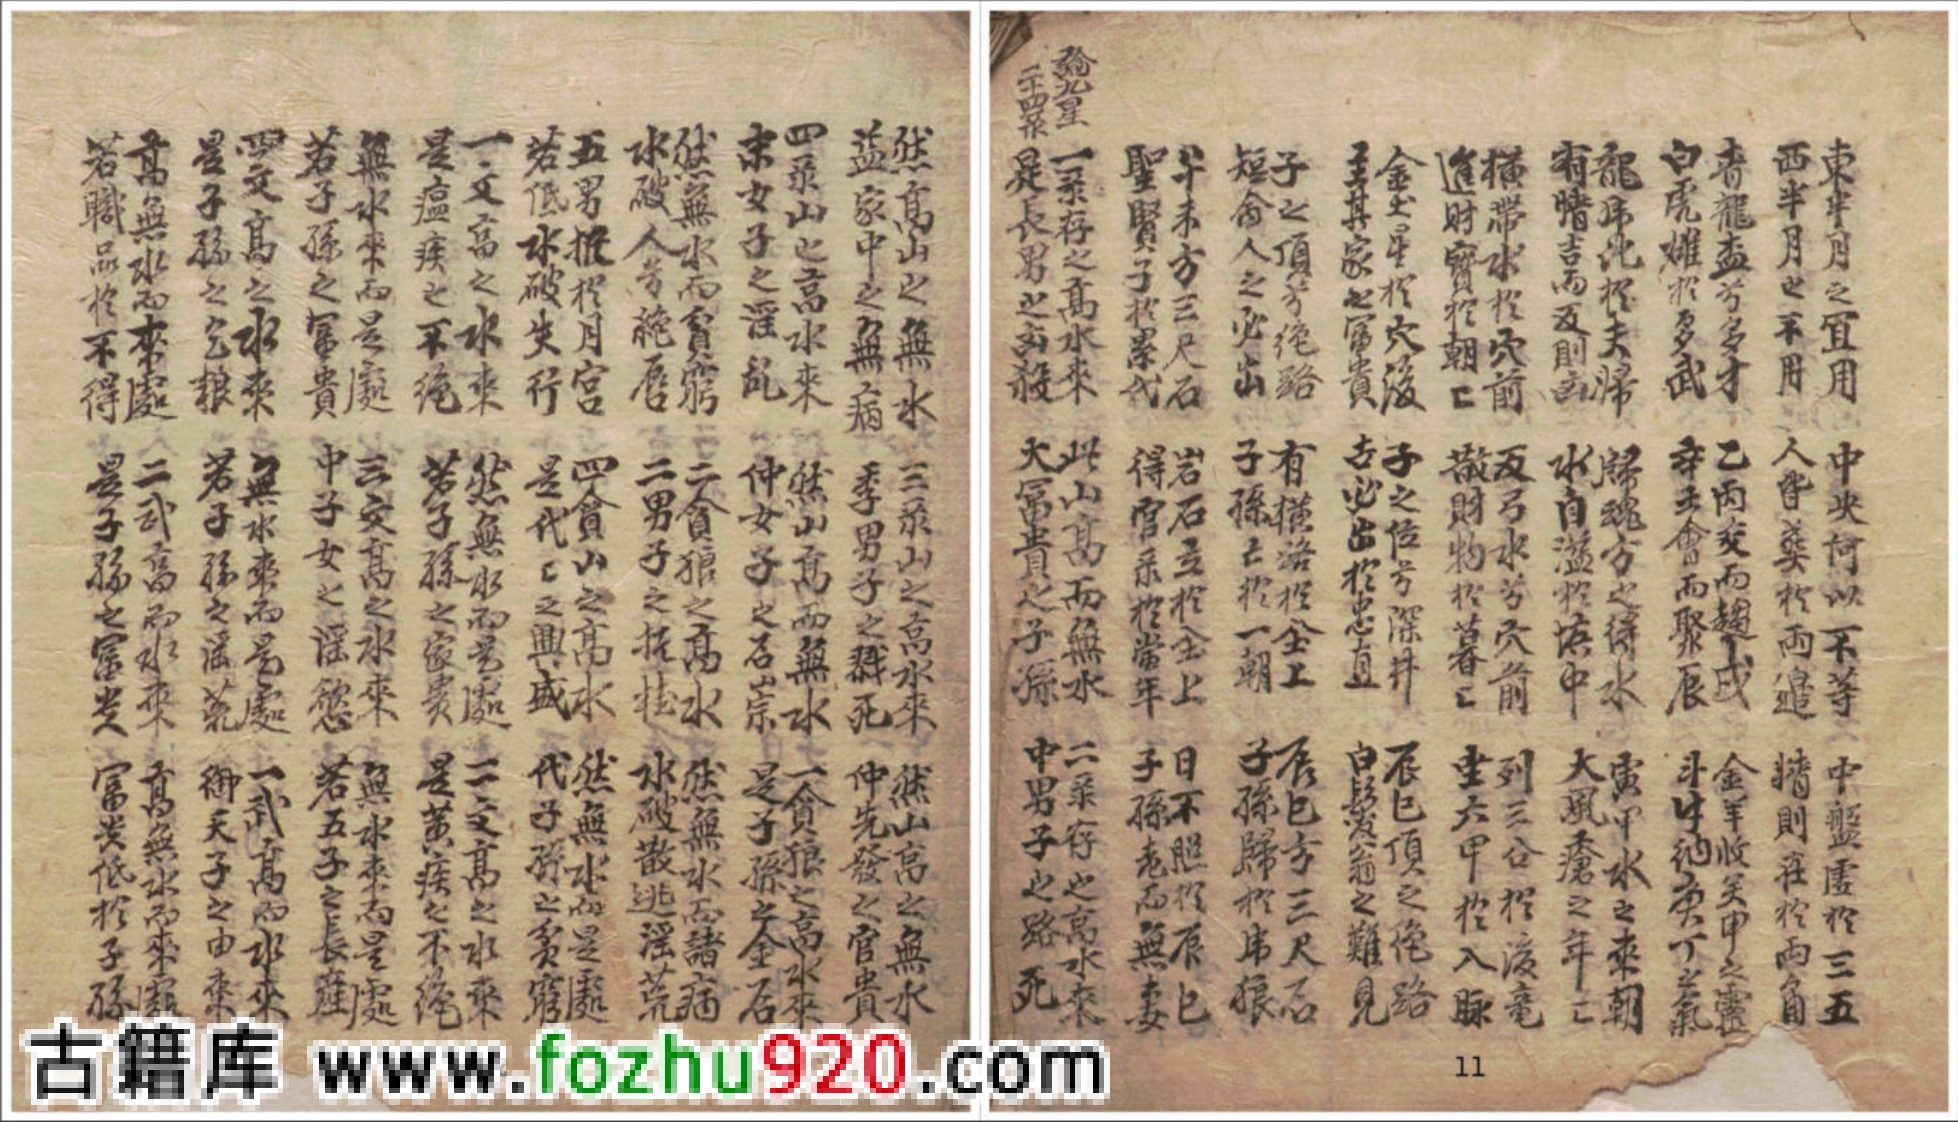 東半月之宜用 中央何以不等 中盤虛於三五
西半月之不用 人皆葬於兩邉 精則在於兩角
青龍盃兮多才 乙丙交而趨戌 金羊收癸甲之靈
白虎雄於多武 辛壬會而聚辰 斗牛納庚丁之氣
龍虎沈於夫歸 歸魂方之得水 寅甲水之來朝
有情吉而反則凶 水自溢於塚中 大風瘡之年亡
橫帶水於穴前 反弓水兮穴前 列三公於後竜
進財寶於朝亡 散財物於暮亡 坐六甲於入脉
金土星於穴後 子之位兮深井 辰巳頂之绝路
主其家之富貴 古必出於忠直 白髮翁之難見
子之頂兮绝路 有橫路於仝上 辰巳方三尺石
短命人之必出 子孫亡於一朝 子孫歸於虎狼
斗未方三尺石 岩石立於仝上 日不照於辰巳
聖賢子於累代 得官录於當年 子孫老而無妻
論九星
二十四录
一录存之高水來 此山高而無水 二录存之高水來
是長男之凶殺 大冨貴之子孫 中男子之路死
11
然高山之無水 三录山之高水來 然山高之無水
益家中之無病 季男子之戮死 仲先發之官貴
四录山之高水來 然山高而無水 一貪狼之高水來
末女子之淫乱 仲女子之石崇 是子孫之金石
然無水而貧窮 二貪狼之高水 然無水而諸病
水破人兮絶唇 二男子之抗桂 水破散逃淫荒
五男推於月宮 四貪山之高水 然無水而是處
若低水破失行 是代亡之興盛 代子孫之貧窮
一文高之水來 然無水而是處 二文高之水來
是瘟疾之不绝 若子孫之家貴 是黃疾之不绝
無水來而是處 三文高之水來 無水來而是處
若子孫之富貴 中子女之淫慾 若五子之長座
四文高之水來 無水來而是處 一武高而水來
是子孫之乞粮 若子孫之淫荒 御天子之由來
高無水而來處 二武高而水來 高無水而來處
若職品於不得 是子孫之富贵 富贵低於子孫
古籍库 www.fozhu920.com